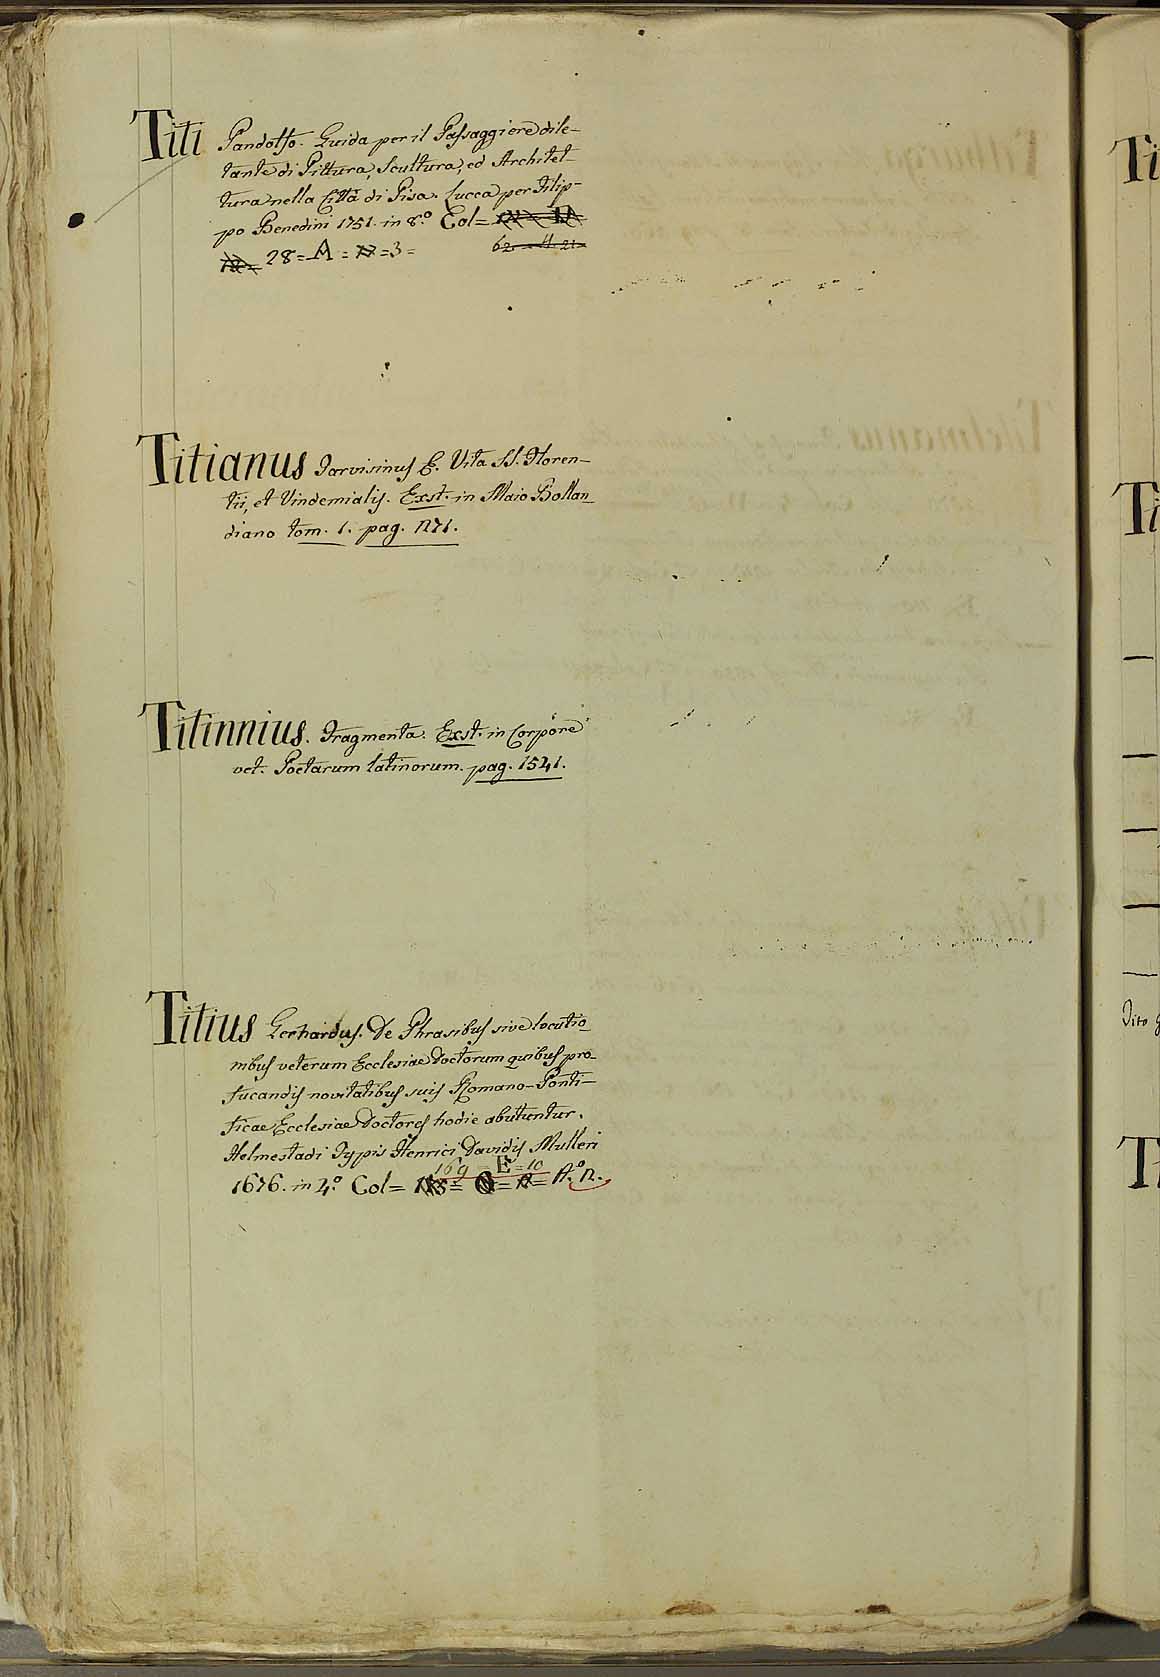 Titi Pandolfo. Guida per il Passaggiere dile-
tante di Pittura, Scultura, ed Architet-
tura nella Città di Pisa. Lucca per Filip-
po Benedini 1751. in 8.º Col=
28=A= =3=
62= 4. 21=
Titianus Tarvisinus E. Vita SS. Floren-
tii, et Vindemialis. Exst. in Maio Bollan-
diano tom. 1. pag. 271.
Titinnius. Fragmenta. Exst. in Corpore
vet. Poetarum latinorum. pag. 1541.
Titius Gerhardus. De Phrasibus sive locutio-
nibus veterum Ecclesiae Doctorum quibus pro-
fucandis novitatibus suis Romano-Ponti-
ficae Ecclesiae Doctores hodie abutuntur.
Helmestadi Typis Henrici Davidis Mulleri
169 E=10
1676. in 4.º Col=
Ti
Ti
Tito
Ti